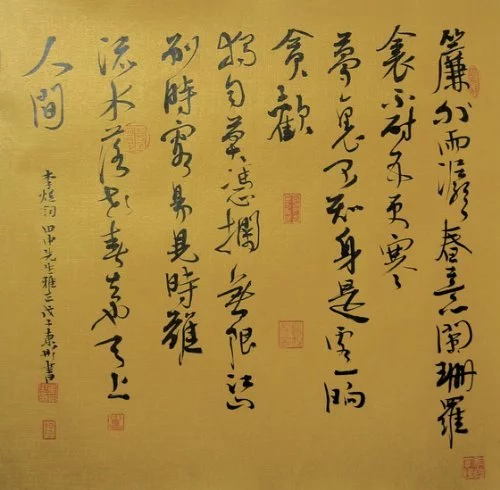 簾外雨潺潺春意闌珊羅
衾不耐五更寒
夢裏不知身是客一晌
貪歡
獨自莫憑欄無限江山
別時容易見時難
流水落花春去也天上
人間
李煜詞 田中先生雅正 戊子東書